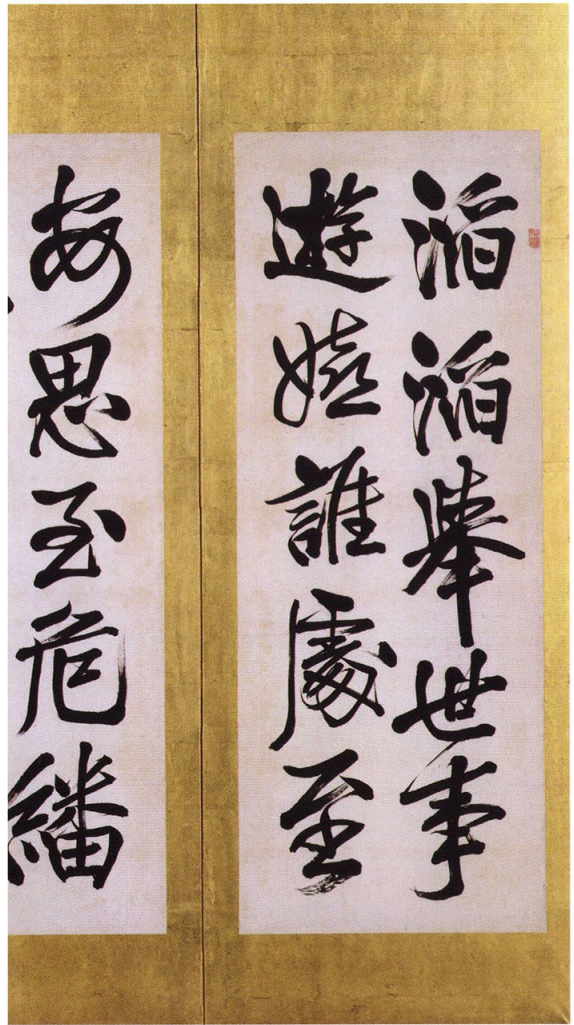 滔滔舉世事
遊嬉誰處至
安思至危
繙